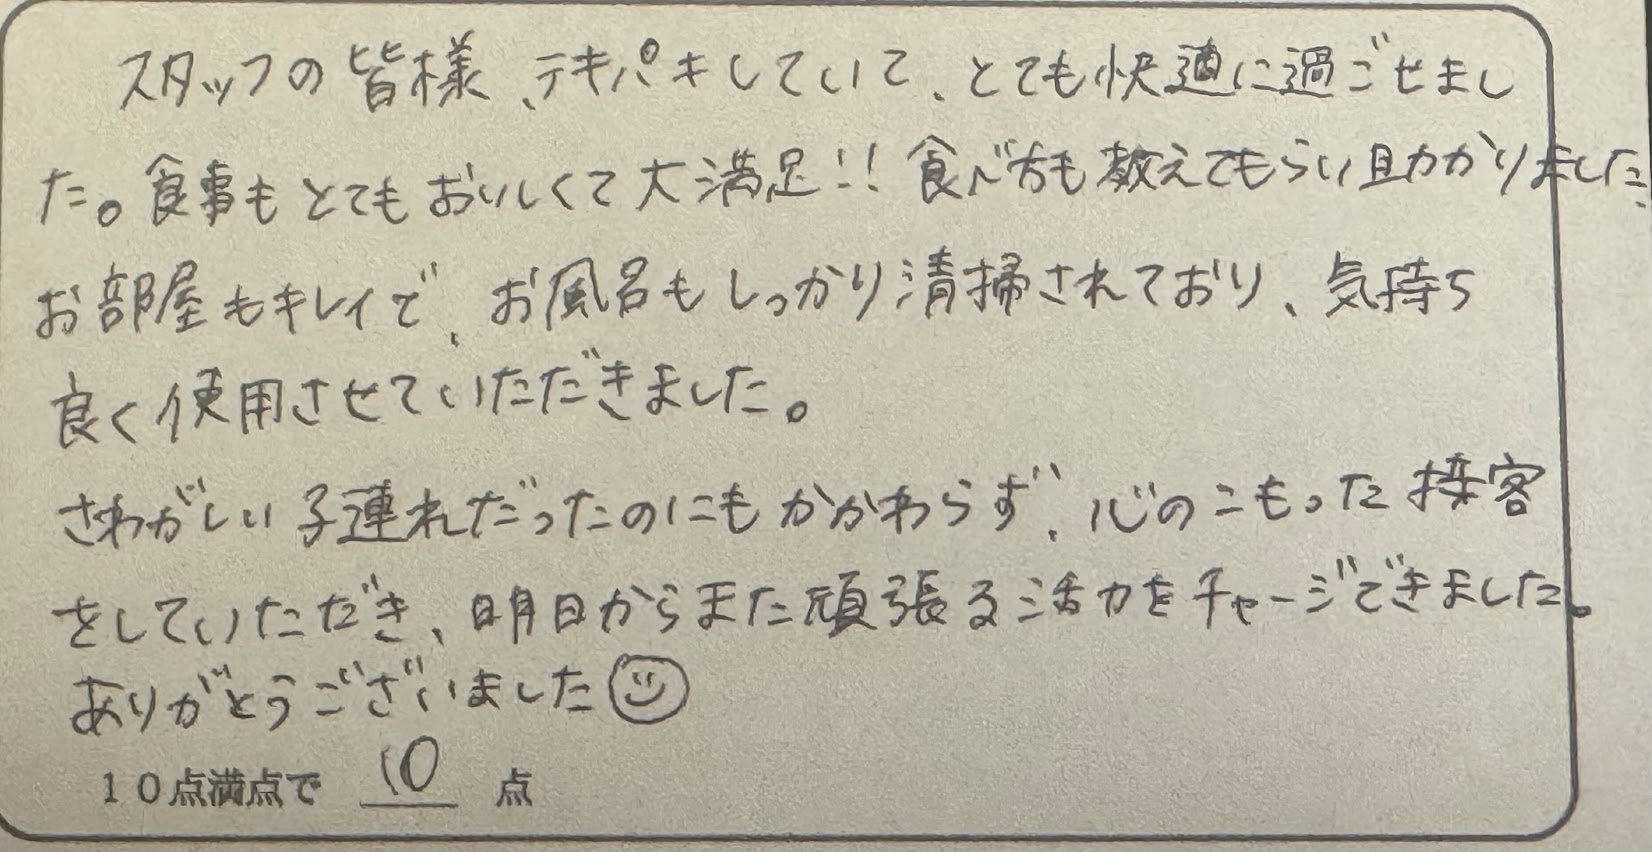 スタッフの皆様、テキパキしていて、とても快適に過ごせまし
た。食事もとてもおいしくて大満足!! 食べ方も教えてもらい助かりました。
お部屋もキレイで、お風呂もしっかり清掃されており、気持ち
良く使用させていただきました。
さわがしい子連れだったのにもかかわらず、心のこもった接客
をしていただき、明日からまた頑張る活力をチャージできました。
ありがとうございました☺
10点満点で 10 点